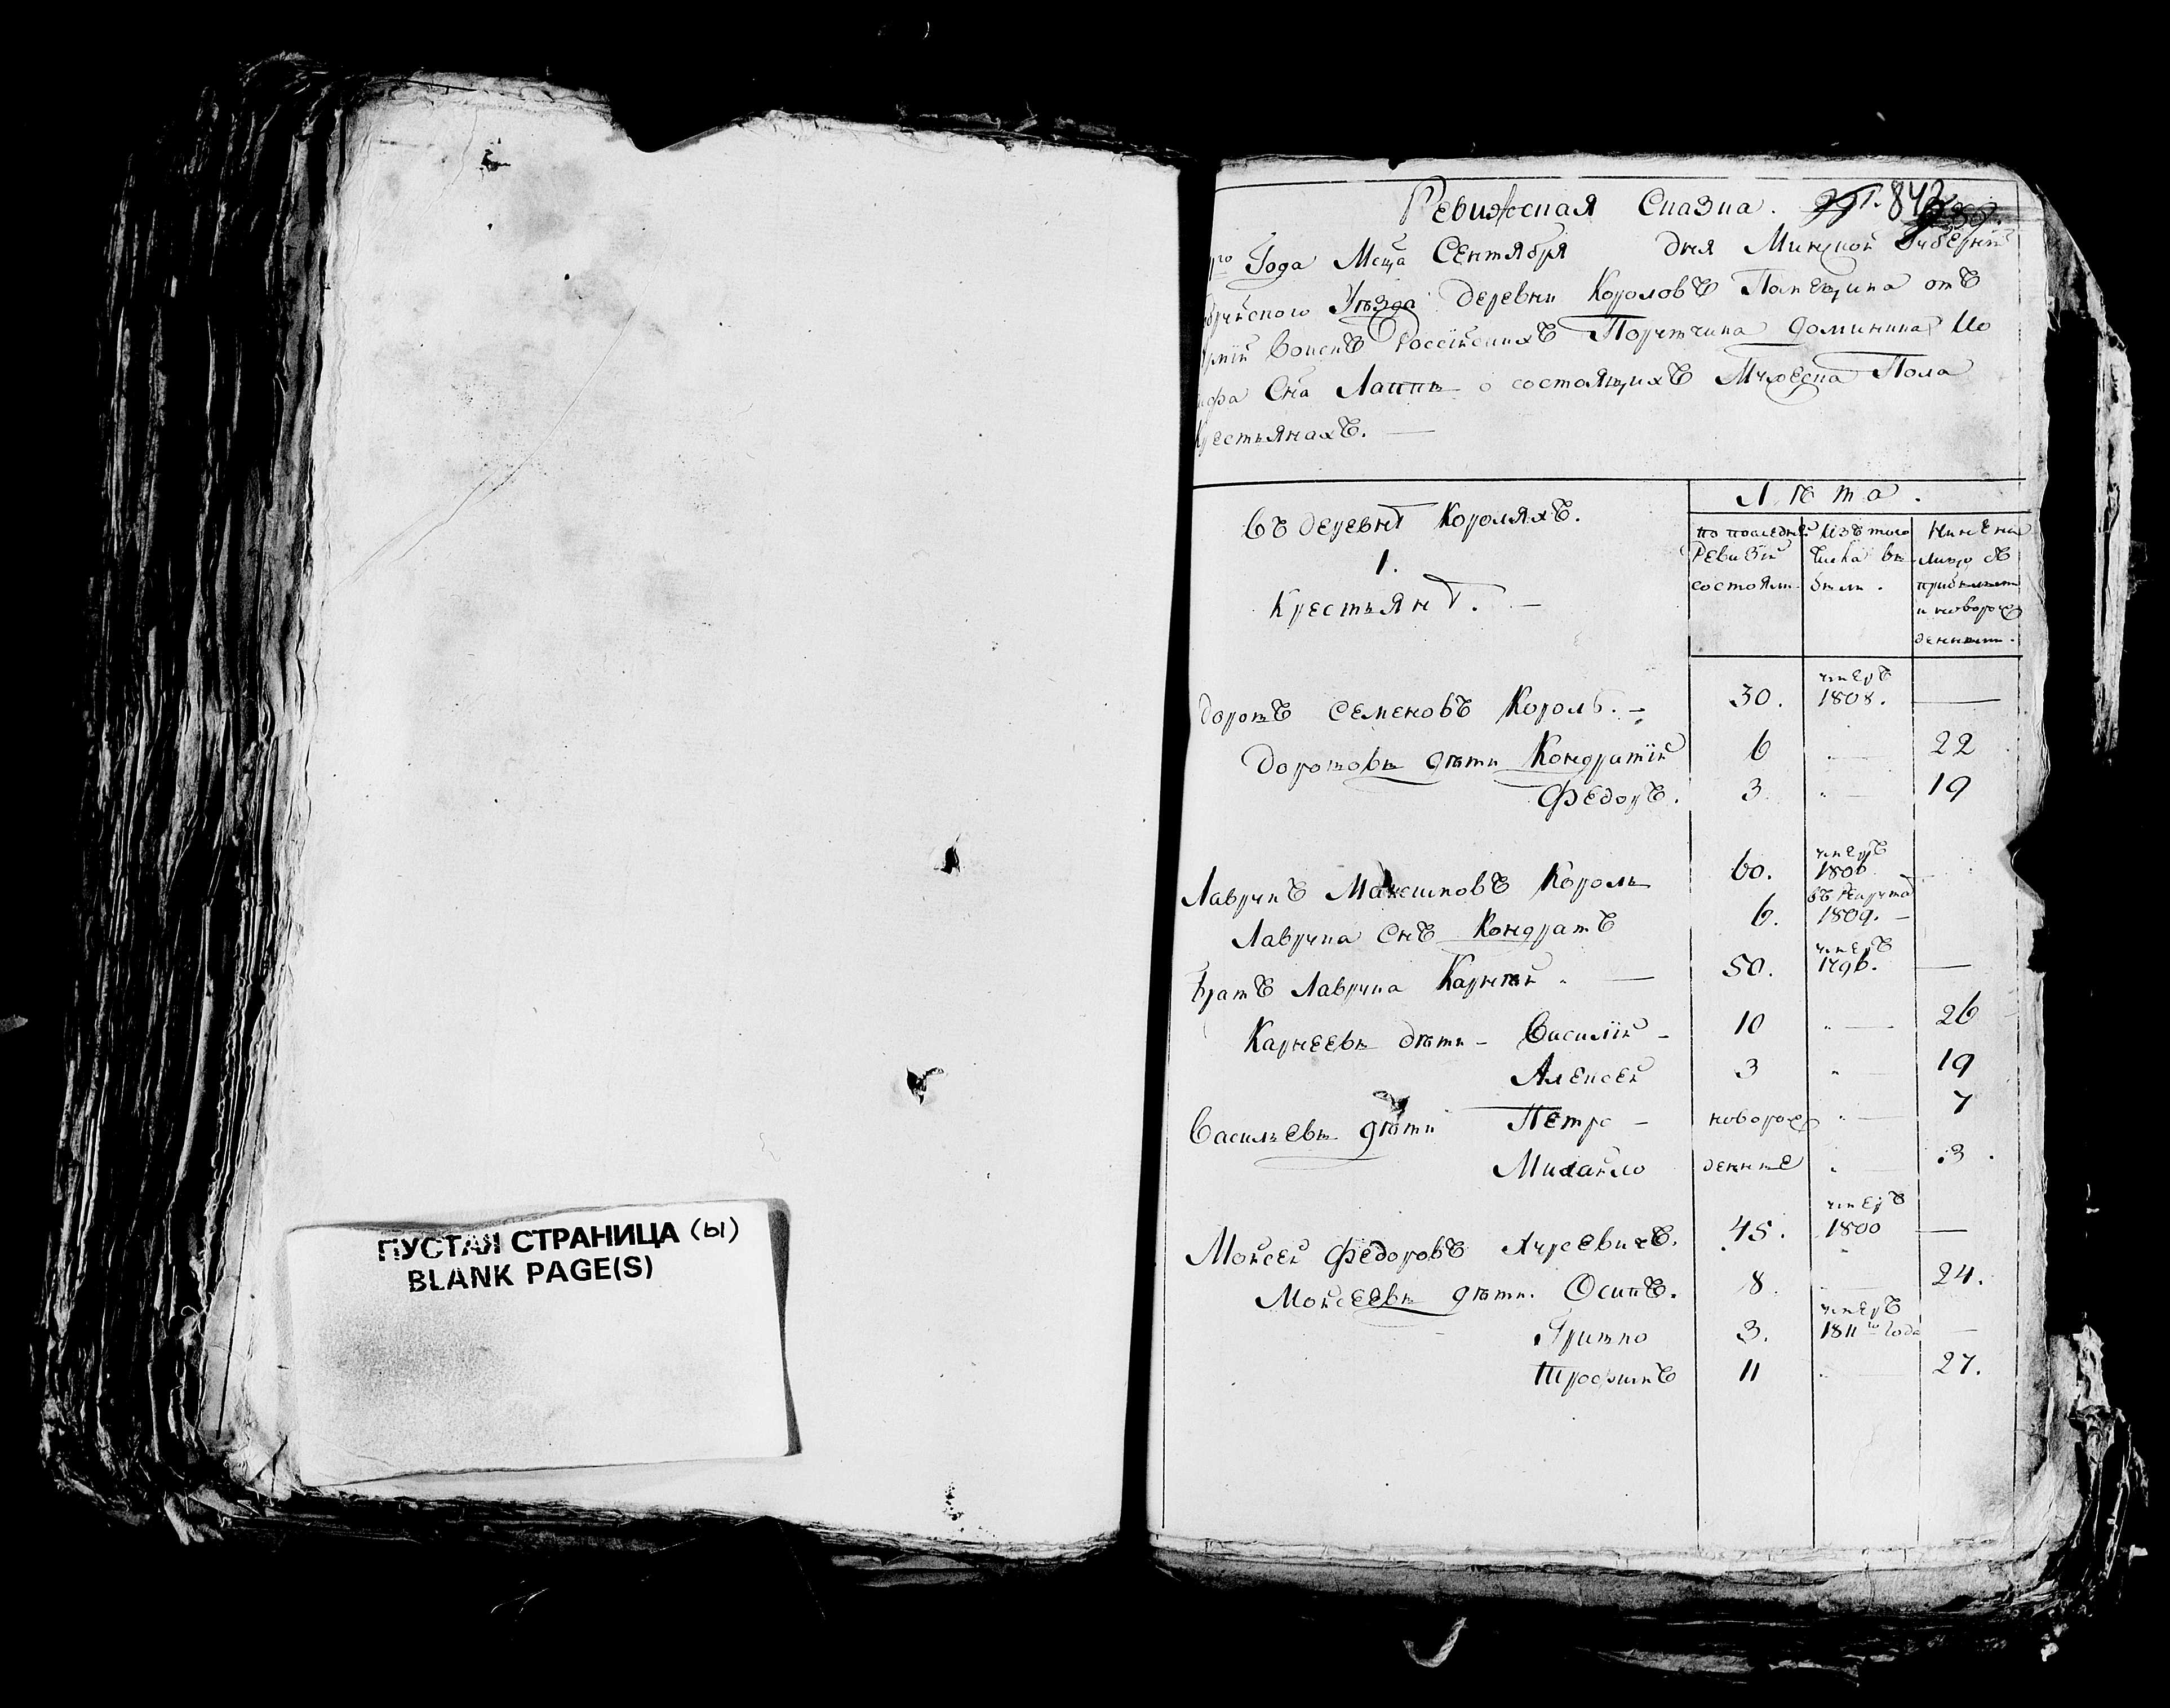 ПУСТАЯ СТРАНИЦА (ы)
BLANK PAGE(S)
Ревижская Сказка. 842
го Года Мсца Сентября дня Минской Губернїи
Уѣзда деревни Короловъ Помещика отъ
Воискъ Россїйскихъ Порутчика Доминика Ио
Сна Лаппы о состоящихъ Мужеска Пола
крестьянахъ.
Лѣта.
въ деревнѣ Короляхъ.
1.
Крестьянѣ.
по последней Ревизїи состояли.
Изъ того числа выбыли.
Нинѣ на лицо съ прибылыми и новорожденными.
Доротъ Семеновъ Король. 30. умеръ 1808.
Доротовы дѣти Кондратїй 6 22
Федоръ. 3 19
Лаврукъ Король 60. умеръ 1806
Лаврука Снъ Кондратъ 6. въ Рекрута 1809.
братъ Лаврука Карнѣй 50. умеръ 1796.
Карнеевы дѣти Василїй 10 26
Алексей 3 19
Васильевы дѣти Петро новорож 7
Михайло денные 3.
Мойсей Федоровъ 45. умеръ 1800
Мойсеевы дѣти. Осипъ. 8. 24.
Гришко 3. умеръ 1811го Года
Трофимъ 11 27.